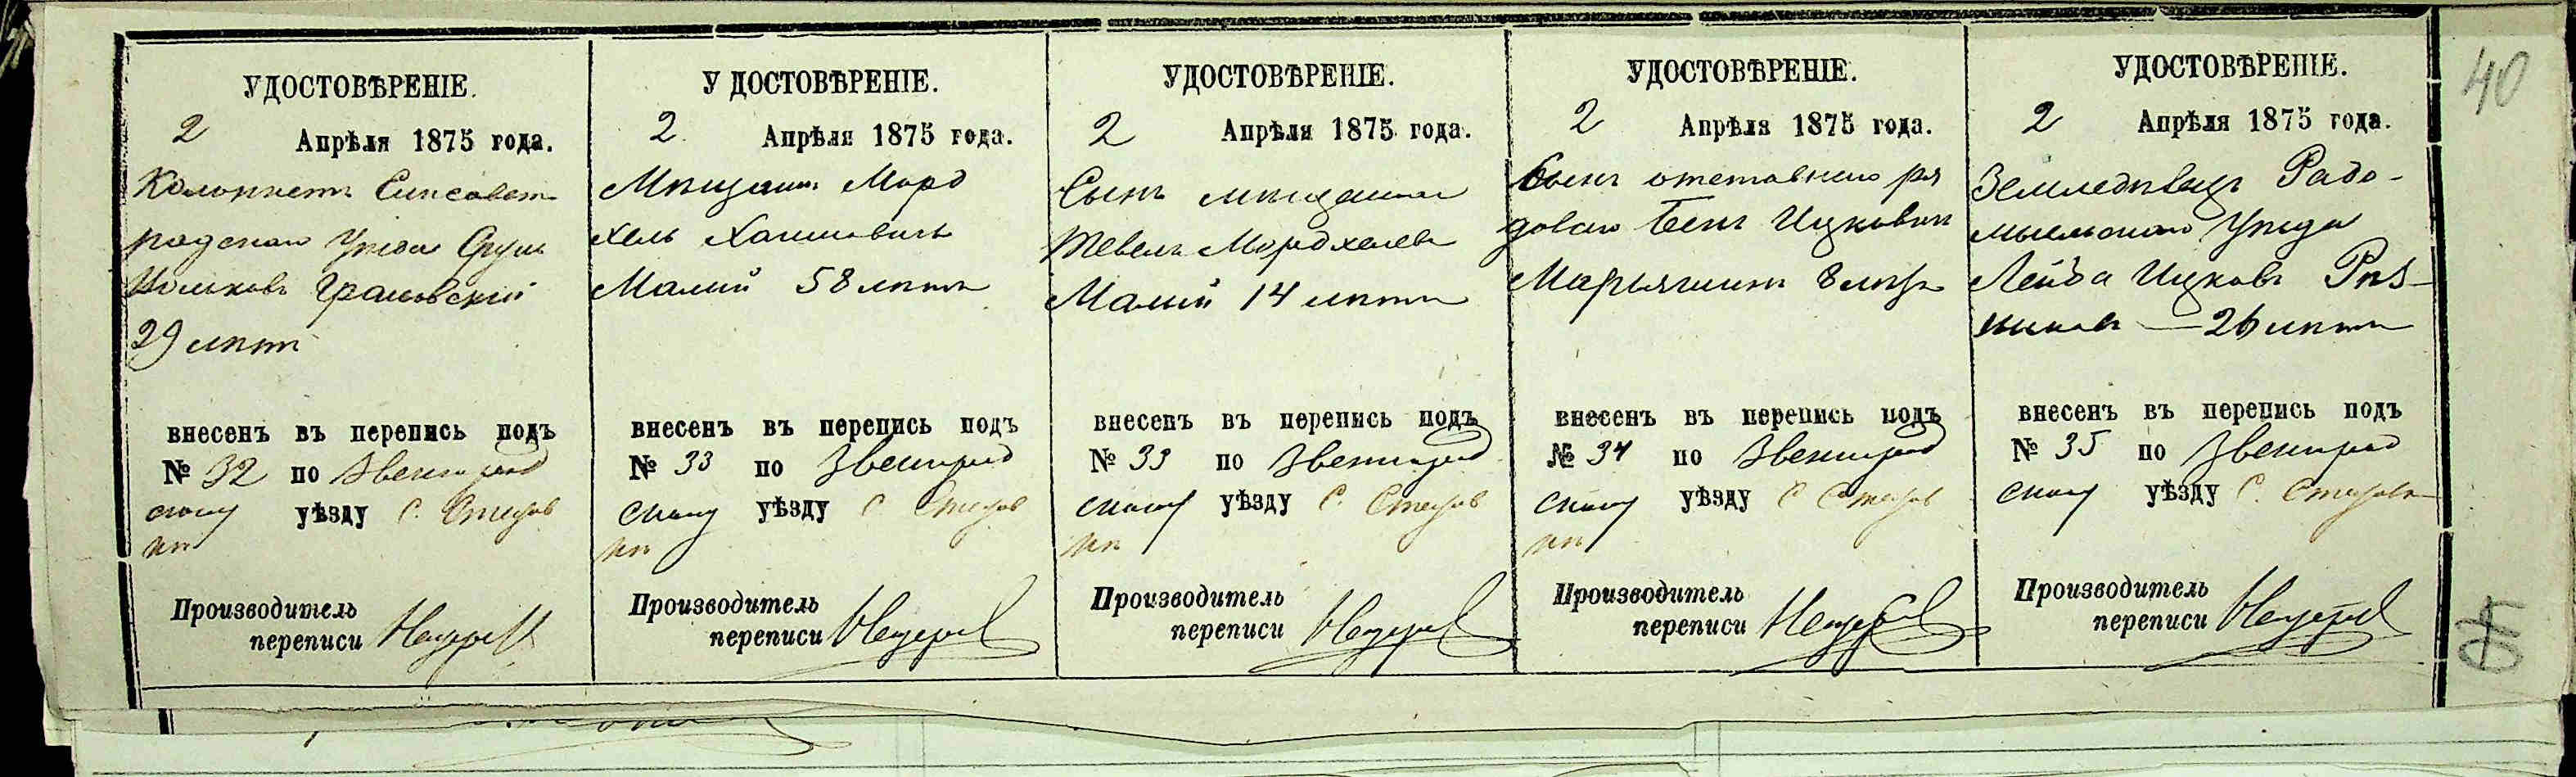 40
УДОСТОВѢРЕНІЕ.
2 Апрѣля 1875 года.
Колонистъ Елисавет
градскаго Уѣзда Сруль
Іосиковъ Грановский
29 лѣтъ
внесенъ въ перепись подъ
№ 32 по Звенигород
скому уѣзду С. Стецов
кѣ
Производитель
переписи
УДОСТОВѢРЕНІЕ.
2 Апрѣля 1875 года.
Мѣщанинъ Морд
хель Хаимовичъ
Малий 58 лѣтъ
внесенъ въ перепись подъ
№ 33 по Звенигород
скому уѣзду С Стецов
кѣ
Производитель
переписи
УДОСТОВѢРЕНІЕ.
2 Апрѣля 1875 года.
Сынъ мѣщанина
Тевель Мордхелев
Малий 14 лѣтъ
внесенъ въ перепись подъ
№ 33 по Звенигород
скому уѣзду С. Стецов
кѣ
Производитель
переписи
УДОСТОВѢРЕНІЕ.
2 Апрѣля 1875 года.
Сынъ отставнаго ря
доваго Бенъ Ицковичъ
8 лѣтъ
внесенъ въ перепись подъ
№ 34 по Звенигород
скому уѣзду С Стецов
кѣ
Производитель
переписи
УДОСТОВѢРЕНІЕ.
2 Апрѣля 1875 года.
Земледѣлецъ Радо-
мысльскаго Уѣзда
Лейба Ицковъ Рѣз-
никовъ — 26 лѣтъ
внесенъ въ перепись подъ
№ 35 по Звенигород
скому уѣзду С. Стецовкѣ
Производитель
переписи